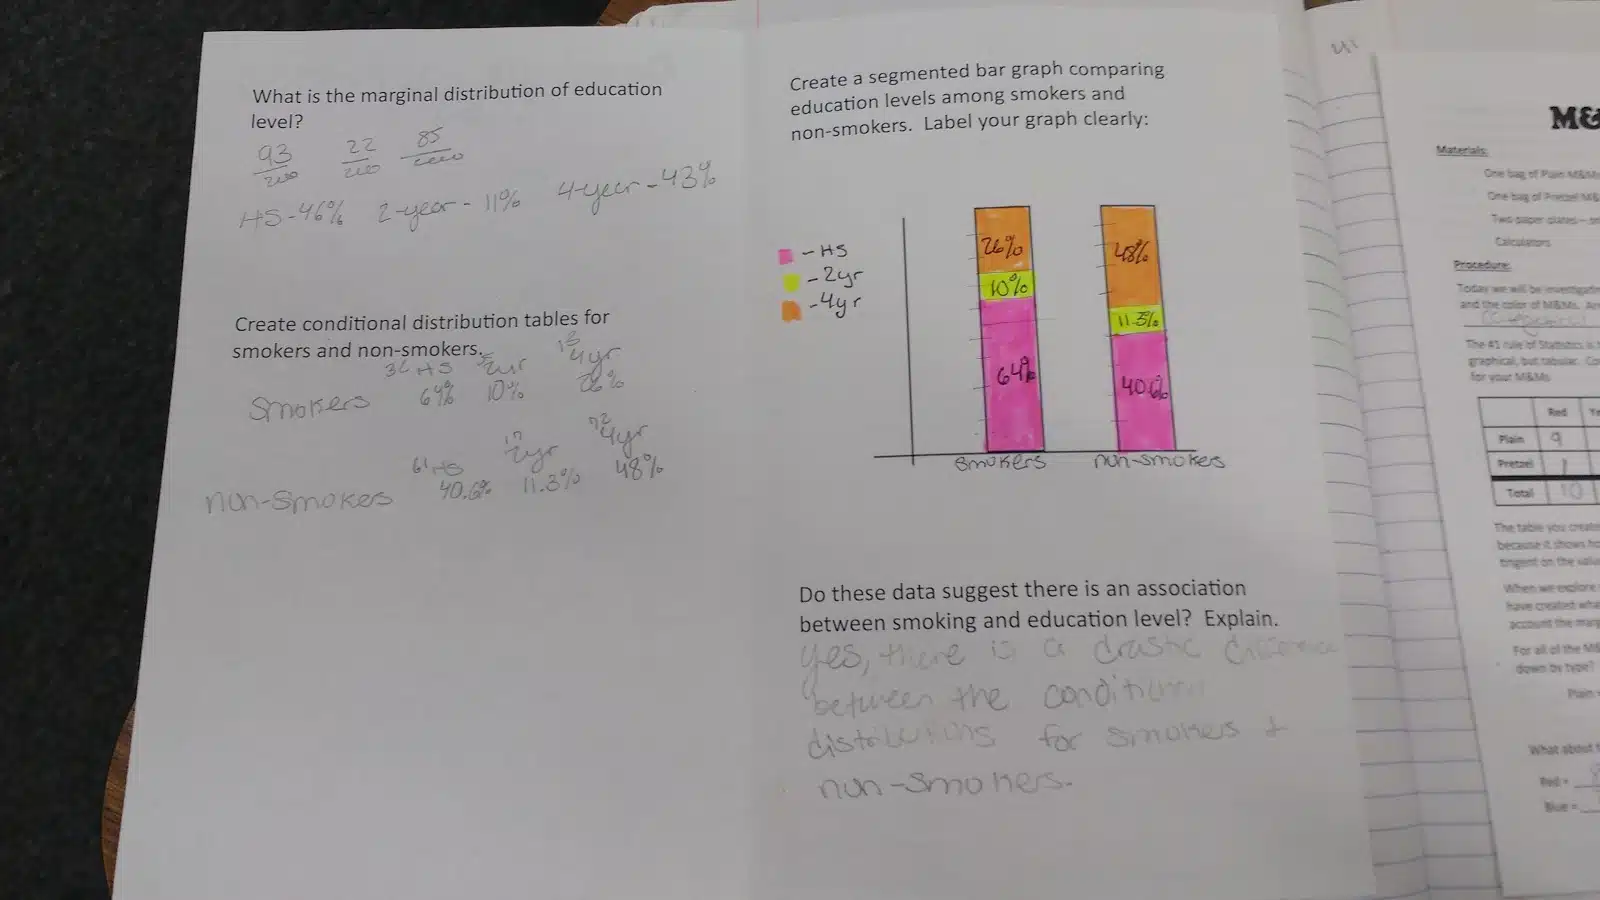 What is the marginal distribution of education
level?
93 22 85
200 200
HS-46% 2-year - 11% 4-year-43%
Create conditional distribution tables for
smokers and non-smokers.
HS 2yr 4yr
smokers 64% 10% 26%
17 72
HS 2yr 4yr
non-smokers 40.6% 11.3% 48%
Create a segmented bar graph comparing
education levels among smokers and
non-smokers. Label your graph clearly:
-HS
-2yr
-4yr
26%
10%
64%
48%
11.3%
40.6%
smokers non-smokers
Do these data suggest there is an association
between smoking and education level? Explain.
yes, there is a drastic difference
between the
distributions for smokers &
non-smokers.
M&
Materials:
One bag of Plain M&Ms
One bag of Pretzel M&
Two paper plates
Calculators
Procedure:
Today we will be investigati
and the color of M&Ms.
The #1 rule of Statistics is
graphical, but tabular.
for your M&Ms
Red Ye
Plain 9
Pretzel 1
Total 10
The table you create
because it shows ho
tingent on the valu
When we explore
have created wha
account the marg
For all of the M&
down by type?
Plain
What about
Red =
Blue =